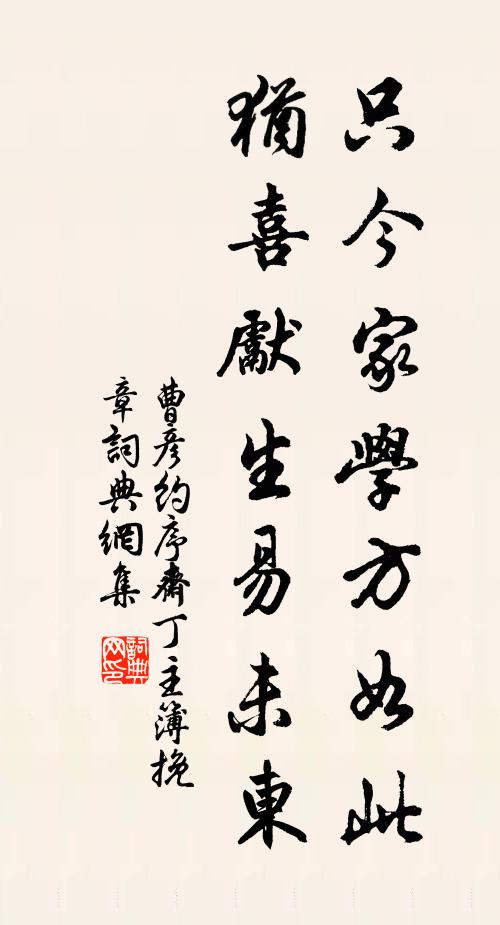 只今家學方如此
猶喜獻生易未東
曹彥約序齋丁主簿挽
章詞典網集
詞典
网印